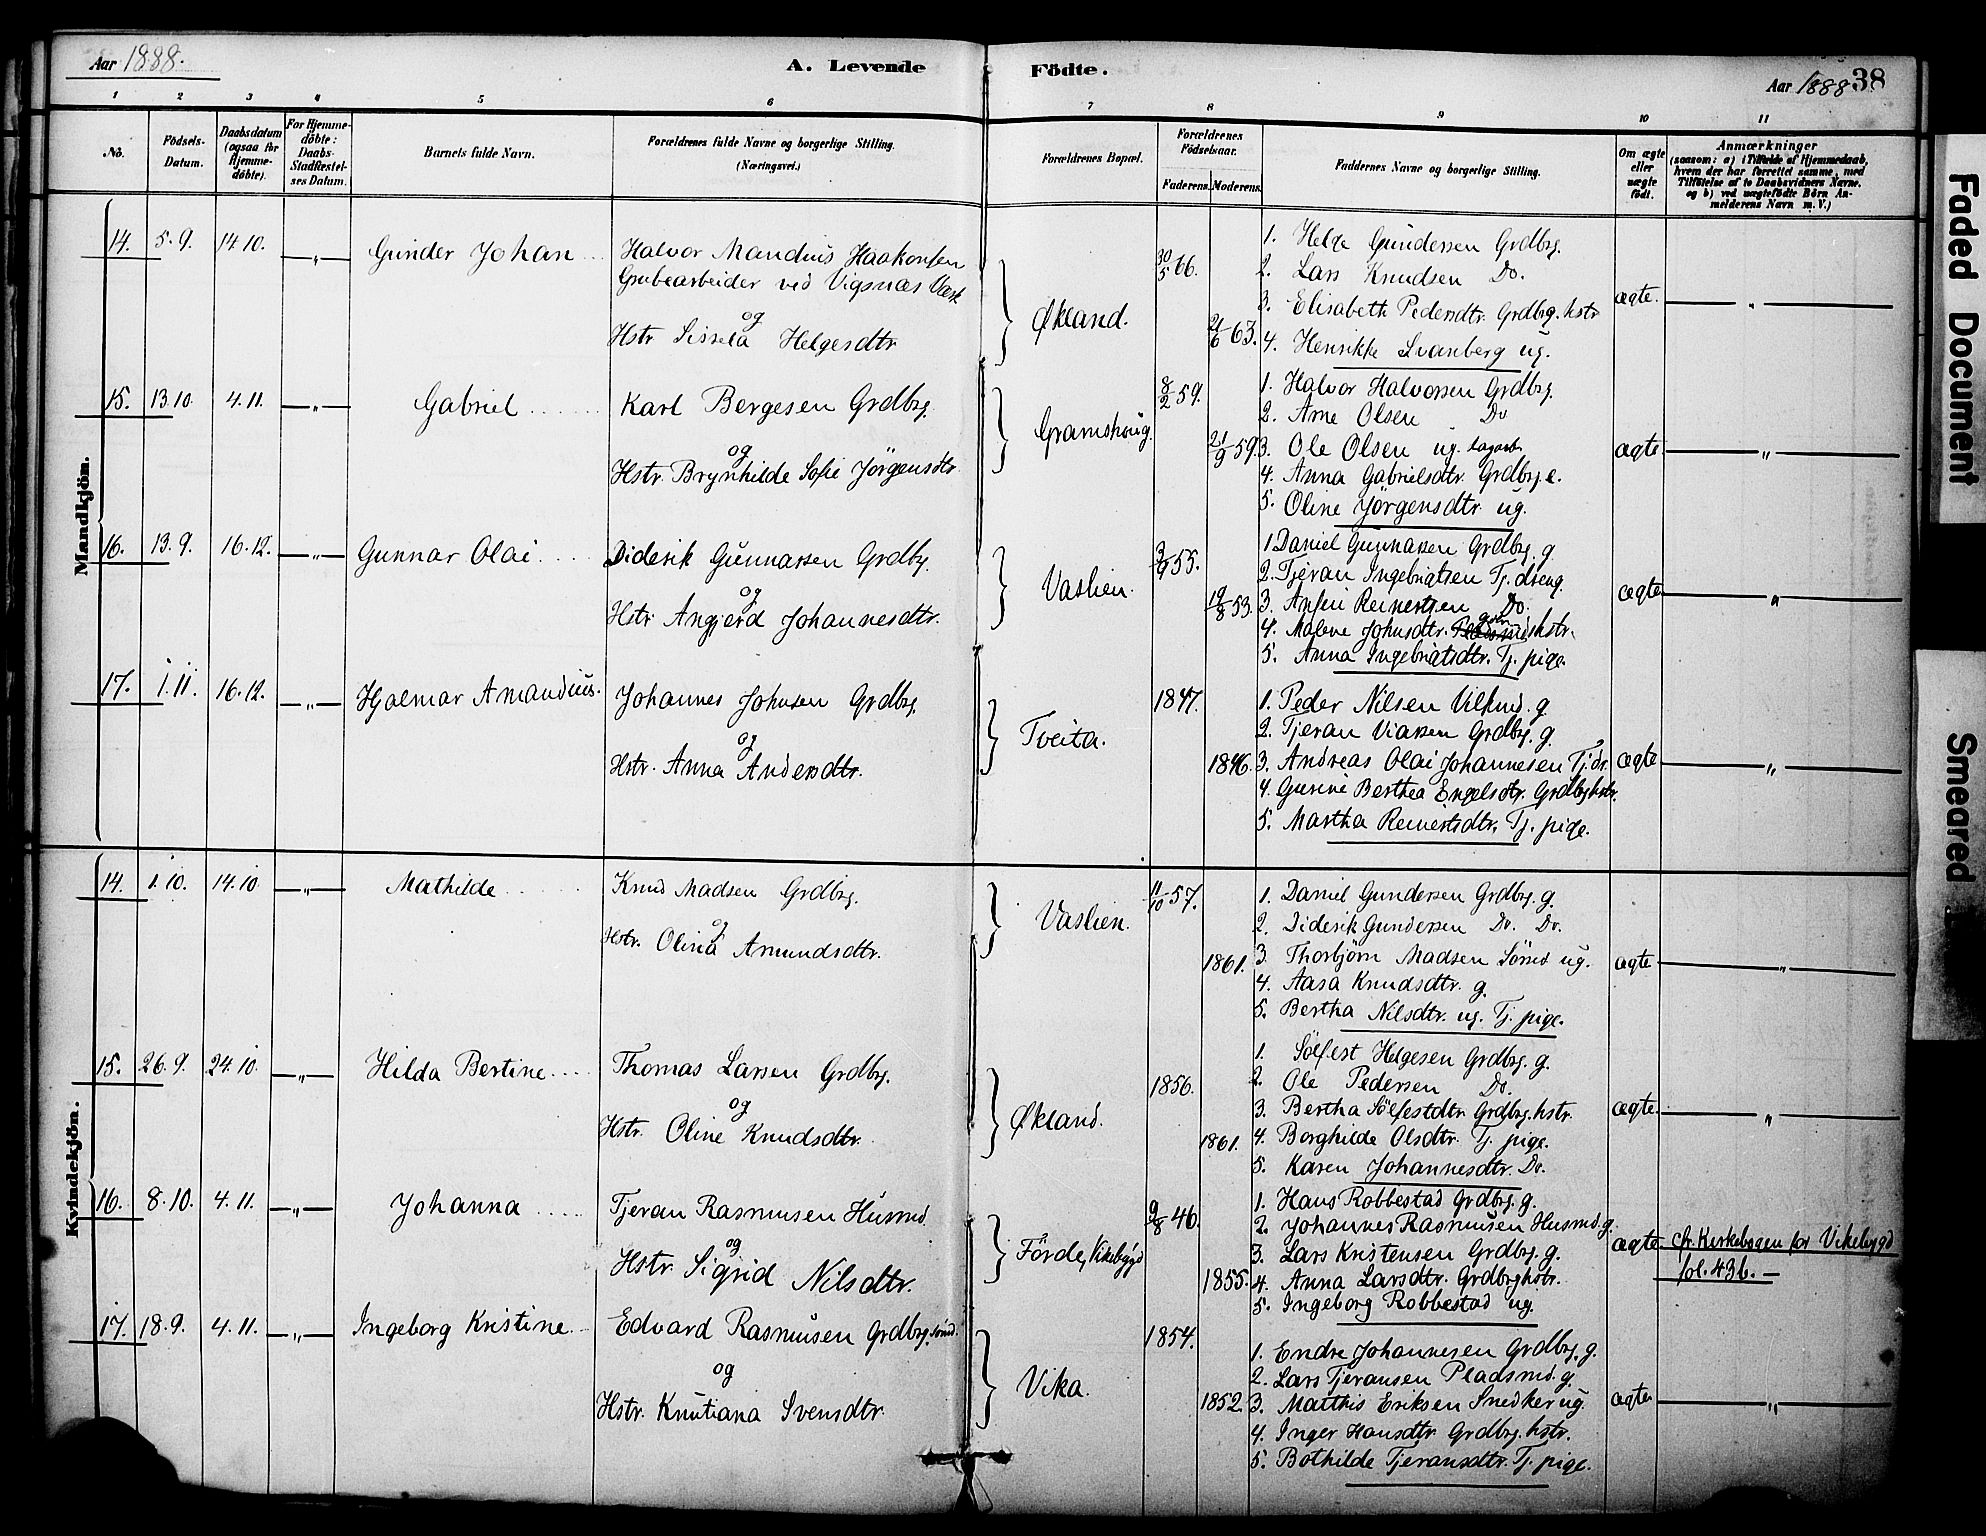 Aar 1888.
A. Levende Födte.
Aar 1888 38
1 2 3 4 5 6 7 8 9 10 11
No.
Födsels-Datum.
Daabsdatum (ogsaa for Hjemme-döbte).
For Hjemme-döbte: Daabs-Stadfæstel-ses Datum.
Barnets fulde Navn.
Forældrenes fulde Navne og borgerlige Stilling. (Næringsvei.)
Forældrenes Bopæl.
Forældrenes Födselsaar.
Faderens. Moderens.
Faddernes Navne og borgerlige Stilling.
Om ægte eller uægte födt.
Anmærkninger
(saasom: a) i Tilfælde af Hjemmedaab, hvem der har forrettet samme, med Tilföielse af to Daabsvidners Navne. og b) ved uægtefödte Börn Anmelderens Navn m. V.)
Mandkjön.
14. 5.9. 14.10. — " — Gunder Johan
Halvor Mandius Haakonsen
Grubearbeider ved Vigsnæs Værk
og
Hstr. Sissela Helgesdtr.
Økland.
30/5 66.
21/6 63.
1. Helge Gundersen Grdbrg.
2. Lars Knudsen Do.
3. Elisabeth Pedersdtr. Grdbrg. hstr
4. Henrikke Svanberg ug.
ægte. — " —
15. 13.10. 4.11. — " — Gabriel
Karl Bergesen Grdbrg.
og
Hstr. Brynhilde Sofie Jörgensdtr.
Gramshoug.
8/2 59.
21/9 59.
1. Halvor Halvorsen Grdbrg.
2. Arne Olsen Do
3. Ole Olsen ug.
4. Anna Gabrielsdtr. Grdbrg. e.
5. Oline Jörgensdtr. ug.
ægte — " —
16. 13.9. 16.12. — " — Gunnar Olai
Diderik Gunnarsen Grdbrg.
og
Hstr. Angjerd Johannesdtr.
Vaslien.
3/9 55.
19/8 53.
1. Daniel Gunnarsen Grdbrg. g.
2. Tjeran Ingebrigtsen Tj. dreng.
3. Anfin Reinertsen Do.
4. Malene Johnsdtr. hstr.
5. Anna Ingebrigtsdtr. Tj. pige.
ægte — " —
17. 1.11. 16.12. — " — Hjalmar Amandius.
Johannes Johnsen Grdbrg.
og
Hstr. Anna Andersdtr.
Tveita.
1847.
1846.
1. Peder Nilsen g.
2. Tjeran Grdbrg. g.
3. Andreas Olai Johannesen Tj. dr.
4. Gurine Berthea Engelsdtr. Grdbrghstr.
5. Martha Reinertsdtr. Tj. pige.
ægte — " —
Kvindekjön.
14. 1.10. 14.10 — " — Mathilde
Knud Madsen Grdbrg.
og
Hstr. Olina Amundsdtr.
Vaslien.
11/10 57.
1861.
1. Daniel Gundersen Grdbrg. g.
2. Diderik Gundersen Do. Do.
3. Thorbjørn Madsen Sömd ug.
4. Aasa Knudsdtr. g.
5. Bertha Nilsdtr. ug. Tj. pige.
ægte — " —
15. 26.9. 24.10. — " — Hilda Bertine
Thomas Larsen Grdbrg.
og
Hstr. Oline Knudsdtr.
Økland.
1856.
1861.
1. Sölfest Helgesen Grdbrg. g.
2. Ole Pedersen Do.
3. Bertha Sölfestdtr. Grdbrg. hstr.
4. Borghilde Olsdtr. Tj. pige.
5. Karen Johannesdtr. Do.
ægte. — " —
16. 8.10. 4.11. — " — Johanna
Tjeran Rasmusen Husmd.
og
Hstr. Sigrid Nilsdtr.
Förde, Vikebygd
9/8 46.
1855.
1. Hans Robbestad Grdbrg. g.
2. Johannes Rasmusen Husmd. g.
3. Lars Kristensen Grdbrg. g.
4. Anna Larsdtr. Grdbrghstr.
5. Ingeborg Robbestad ug.
ægte. cfr. Kirkebogen for Vikebygd
fol. 43b. —
17. 18.9. 4.11. — " — Ingeborg Kristine
Edvard Rasmusen Grdbrg.
og
Hstr. Knutiana Svensdtr.
Vika.
1854.
1852.
1. Endre Johannesen Grdbrg. g.
2. Lars Tjeransen Pladsmd. g.
3. Matthis Eriksen Snedker ug.
4. Inger Hansdtr. Grdbrg. hstr.
5. Bothilde Tjeransdtr. Tj. pige.
ægte — " —
Faded Document
Smeared